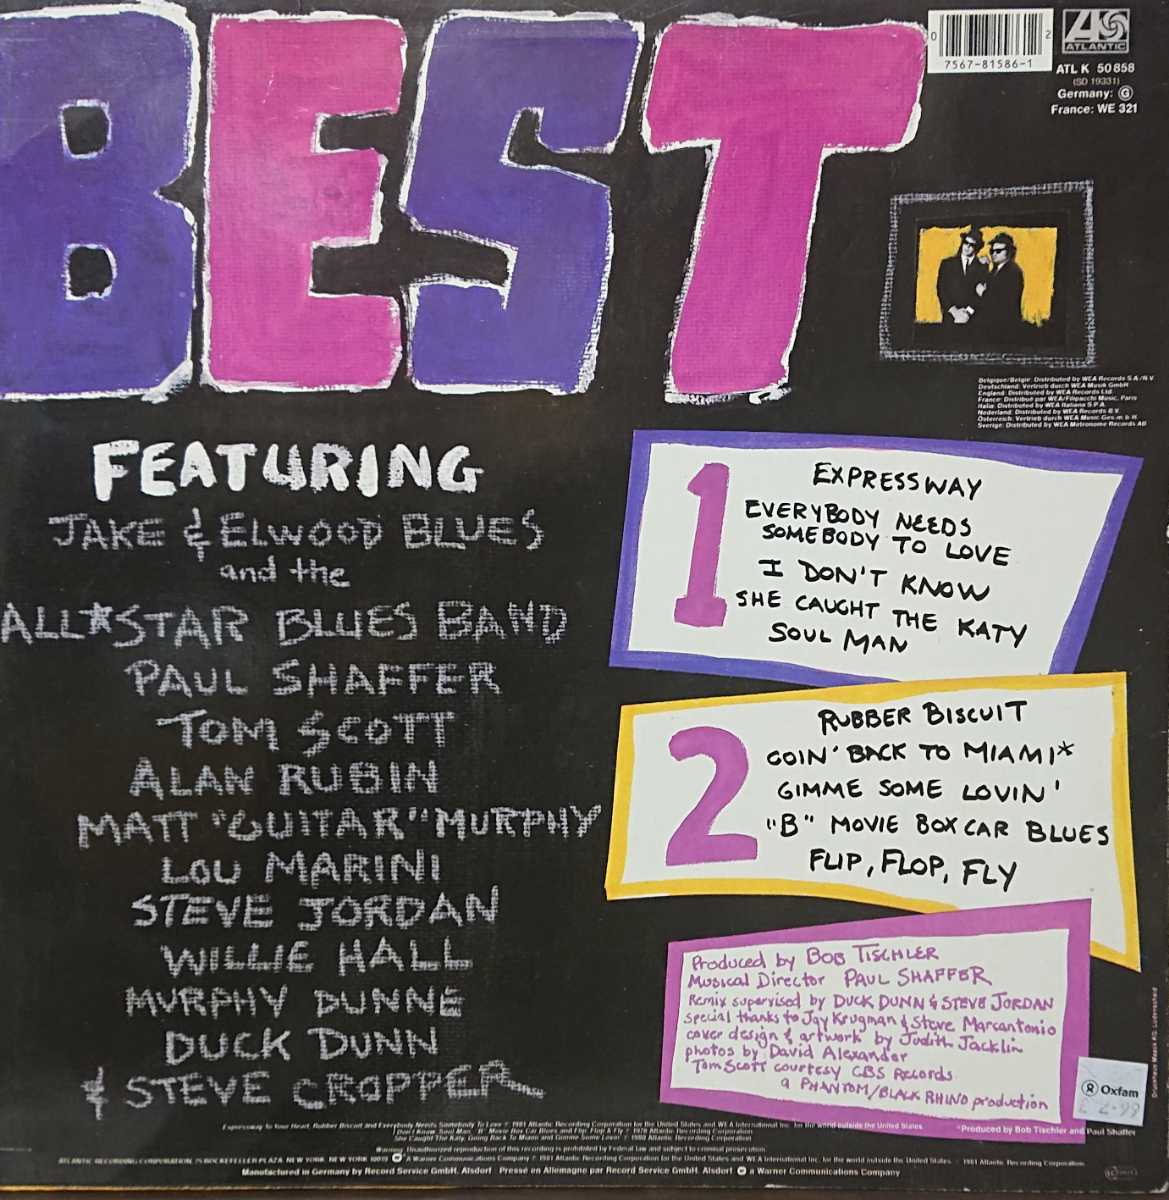 BEST
0 7567-81586-1 2
ATLANTIC
ATL K 50 858
(SD 19331)
Germany: G
France: WE 321
Belgique/Belgie: Distributed by WEA Records S.A./N.V.
Deutschland: Vertrieb durch WEA Musik GmbH
England: Distributed by WEA Records Ltd.
France: Distribué par WEA/Filipacchi Music, Paris
Italia: Distributed by WEA Italiana S.P.A.
Nederland: Distributed by WEA Records B.V.
Österreich: Vertrieb durch WEA Music Ges.m.b.H.
Sverige: Distributed by WEA Metronome Records AB
FEATURING
JAKE & ELWOOD BLUES
and the
ALL★STAR BLUES BAND
PAUL SHAFFER
TOM SCOTT
ALAN RUBIN
MATT "GUITAR" MURPHY
LOU MARINI
STEVE JORDAN
WILLIE HALL
MURPHY DUNNE
DUCK DUNN
& STEVE CROPPER
1
EXPRESSWAY
EVERYBODY NEEDS
SOMEBODY TO LOVE
I DON'T KNOW
SHE CAUGHT THE KATY
SOUL MAN
2
RUBBER BISCUIT
GOIN' BACK TO MIAMI*
GIMME SOME LOVIN'
"B" MOVIE BOX CAR BLUES
FLIP, FLOP, FLY
Produced by BOB TISCHLER
Musical Director PAUL SHAFFER
Remix supervised by DUCK DUNN & STEVE JORDAN
special thanks to Jay Krugman & Steve Marcantonio
cover design & artwork by Judith Jacklin
photos by David Alexander
Tom Scott courtesy CBS Records
a PHANTOM/BLACK RHINO production
Oxfam
£2.99
Expressway to Your Heart, Rubber Biscuit and Everybody Needs Somebody To Love ℗ 1981 Atlantic Recording Corporation for the United States and WEA International Inc. for the world outside the United States.
I Don't Know, Soul Man, "B" Movie Box Car Blues and Flip, Flop & Fly ℗ 1978 Atlantic Recording Corporation
She Caught The Katy, Going Back To Miami and Gimme Some Lovin' ℗ 1980 Atlantic Recording Corporation
*Produced by Bob Tischler and Paul Shaffer
Warning: Unauthorized reproduction of this recording is prohibited by Federal law and subject to criminal prosecution.
ATLANTIC RECORDING CORPORATION, 75 ROCKEFELLER PLAZA, NEW YORK, NEW YORK 10019 A Warner Communications Company © 1981 Atlantic Recording Corporation for the United States and WEA International Inc. for the world outside the United States. ℗ 1981 Atlantic Recording Corporation
Manufactured in Germany by Record Service GmbH, Alsdorf Pressé en Allemagne par Record Service GmbH, Alsdorf a Warner Communications Company